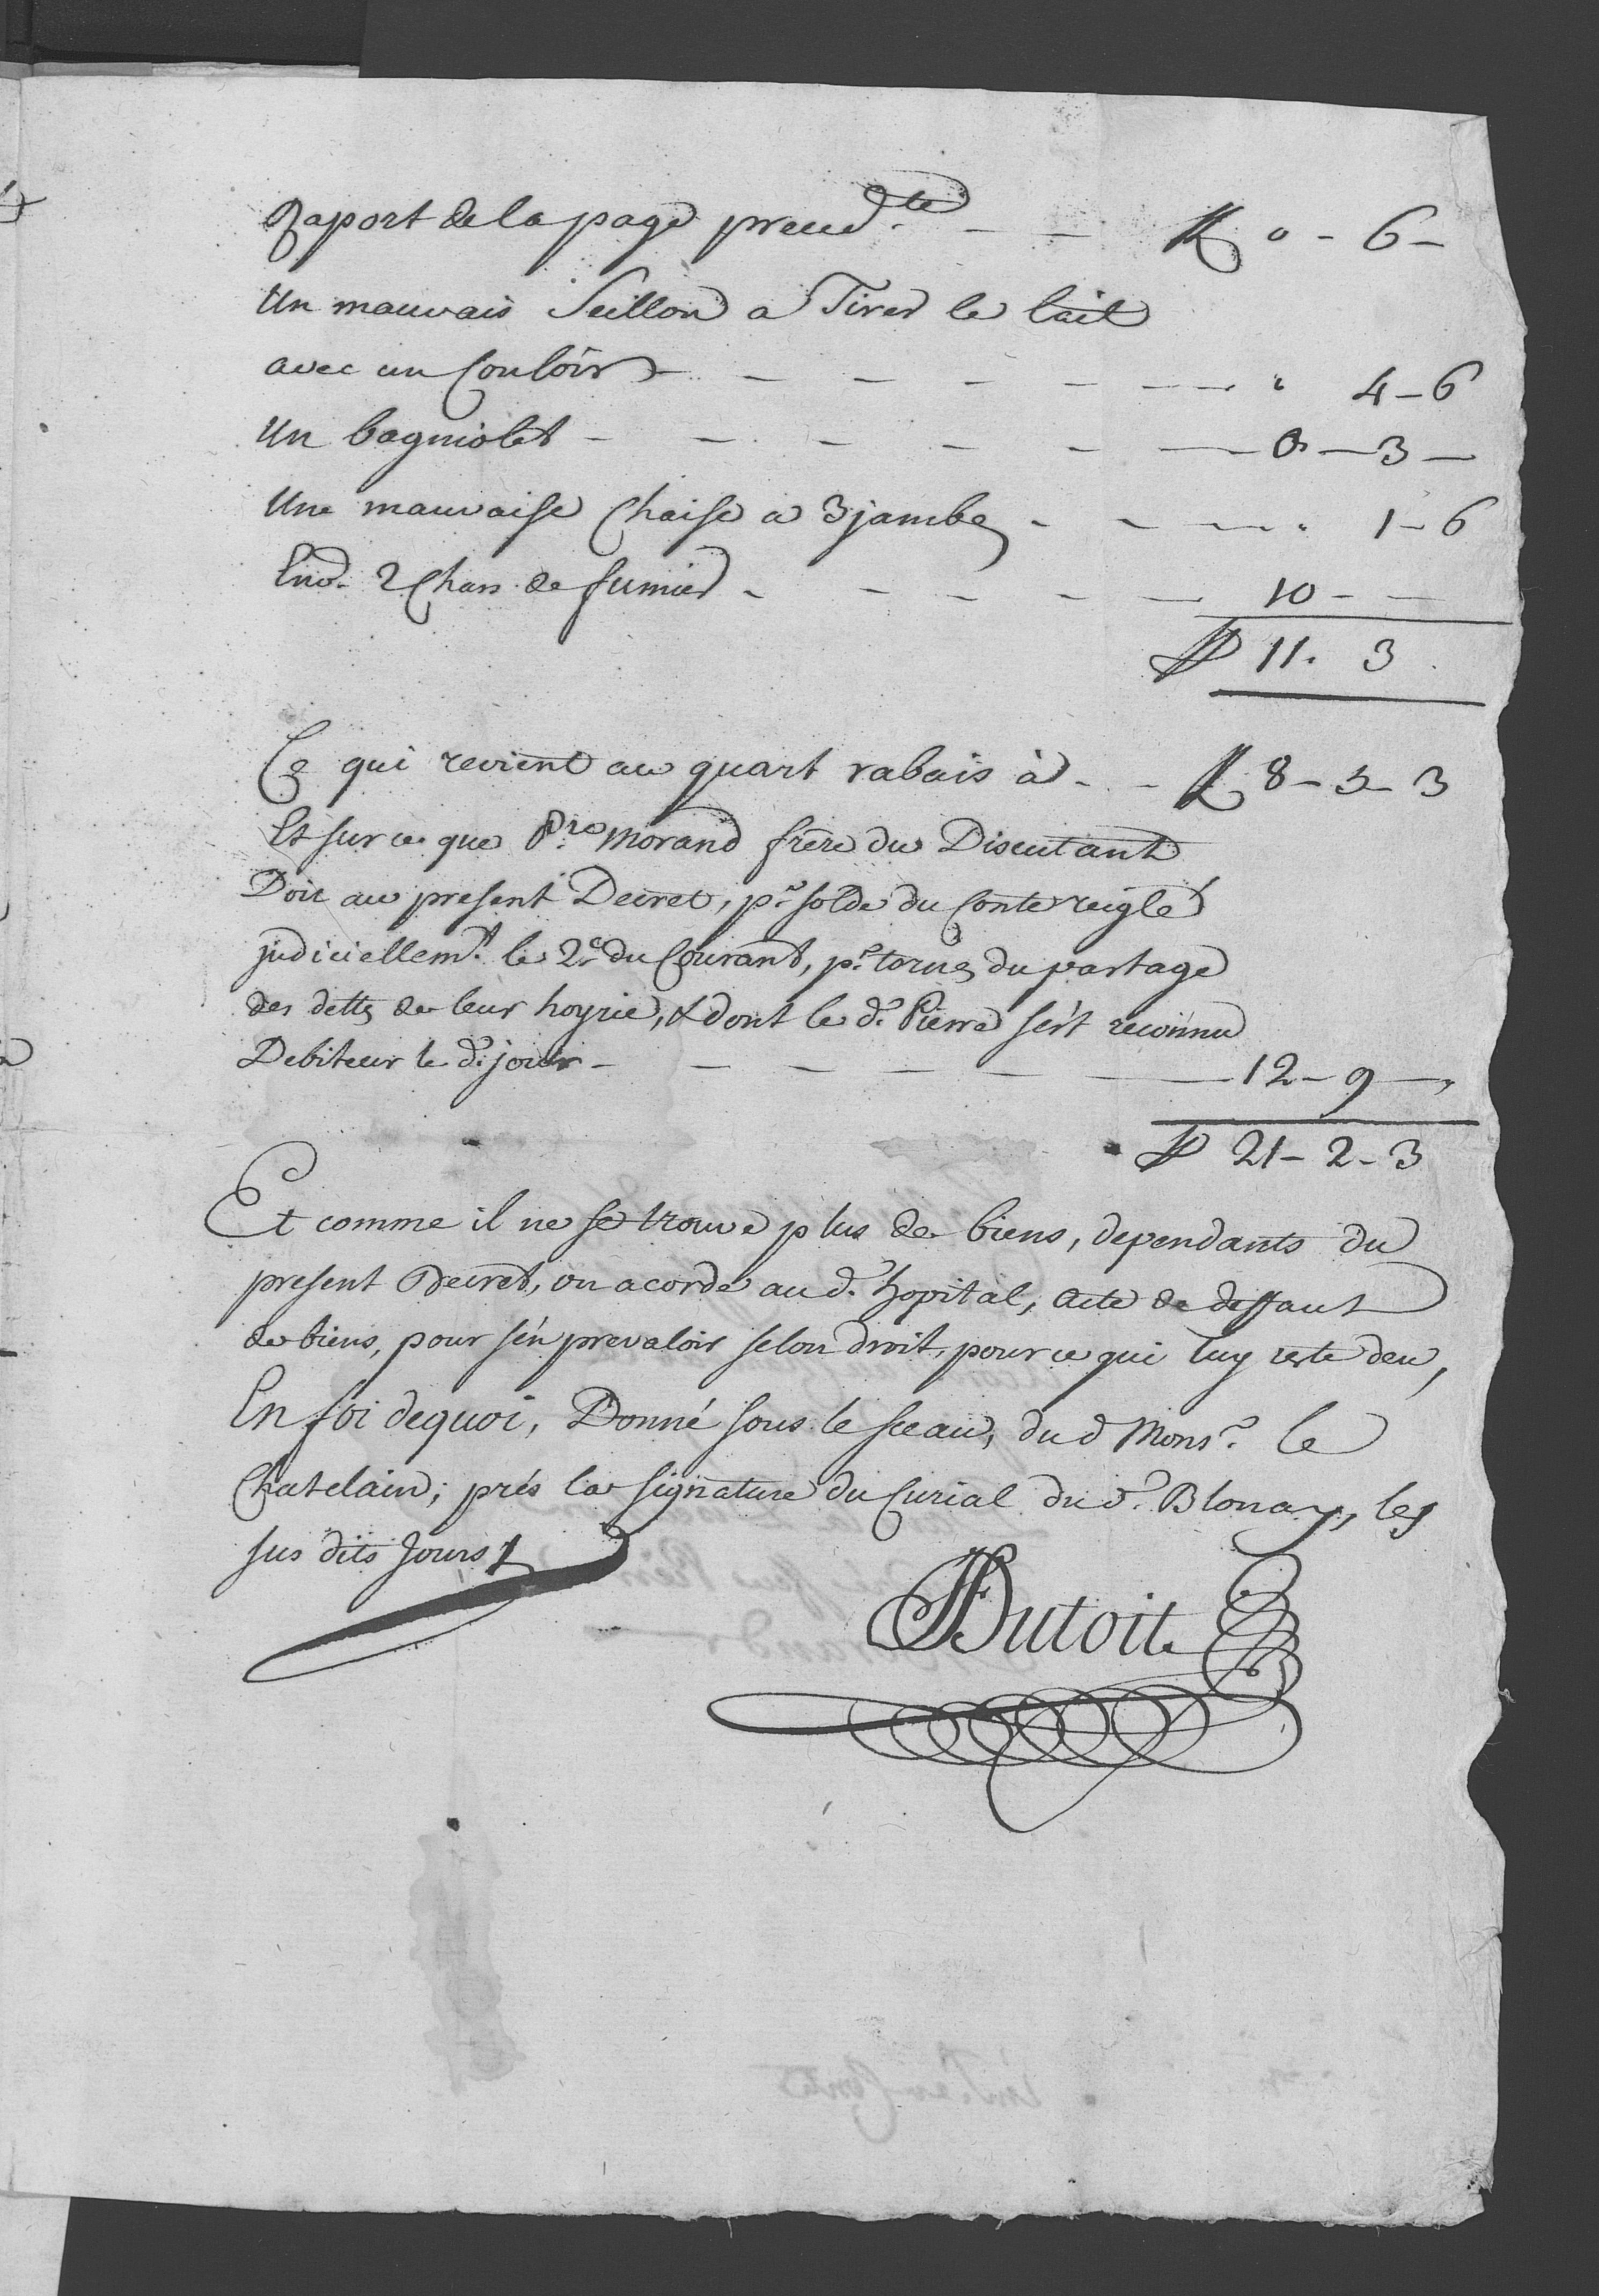 Raport de la page preced.te - - ff o - 6 -
Un mauvais Seillon a Tirer le lait
avec un Couloir - - - - - - " 4 - 6
Un bagniolet - - - - - - 0 - 3 -
Une mauvaise Chaise a 3 jambes - - - " 1 - 6
Env. 2 Chars de fumier - - - - - 10 - -
ff 11. 3
Ce qui revient au quart rabais à - - ff 8 - 5 - 3
Et sur ce que Pre. Morand frère du Discutant
Doit au present Decret, pr. solde du Conte reiglé
judiciellemt. le 2e. du Courant, pr. tornes du partage
des dettes de leur hoyrie, & dont le d. Pierre s'ést reconnu
Debiteur le d. jour - - - - - - 12 - 9 -
ff 21 - 2 - 3
Et comme il ne se trouve plus de biens, dependants du
present Decret, on acorde au d. hopital, Acte de deffaut
de biens, pour s'én prevaloir selon droit, pour ce qui luy reste deu,
En foi dequoi, Donné sous le sceau, du d Monsr. le
Chatelain; prés la signature du Curial du d. Blonay, les
sus dits Jours
Dutoit